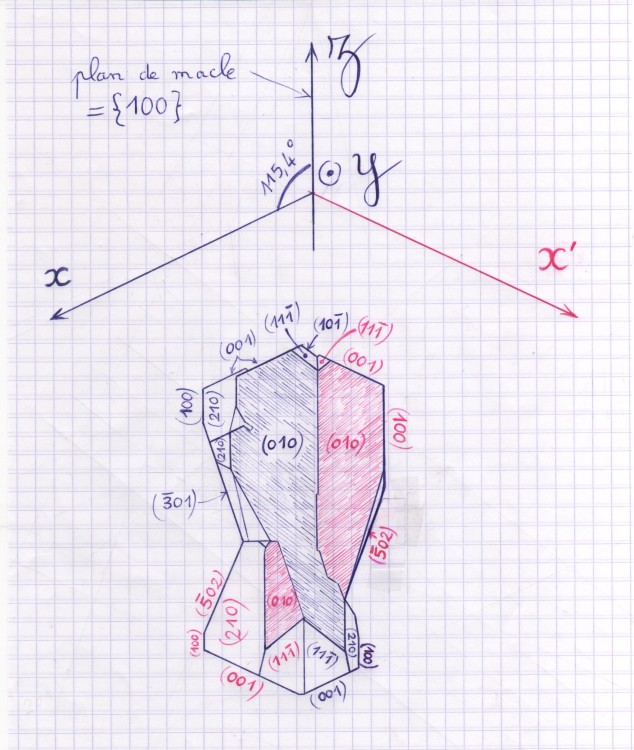 plan de macle
= {100}
z
115,4°
y
x
x'
(111̄)
(101̄)
(111̄)
(001)
(001)
(100)
(210)
(210)
(010)
(010)
(100)
(3̄01)
(5̄02)
(5̄02)
(210)
(010)
(100)
(111̄)
(111̄)
(210)
(100)
(001)
(001)